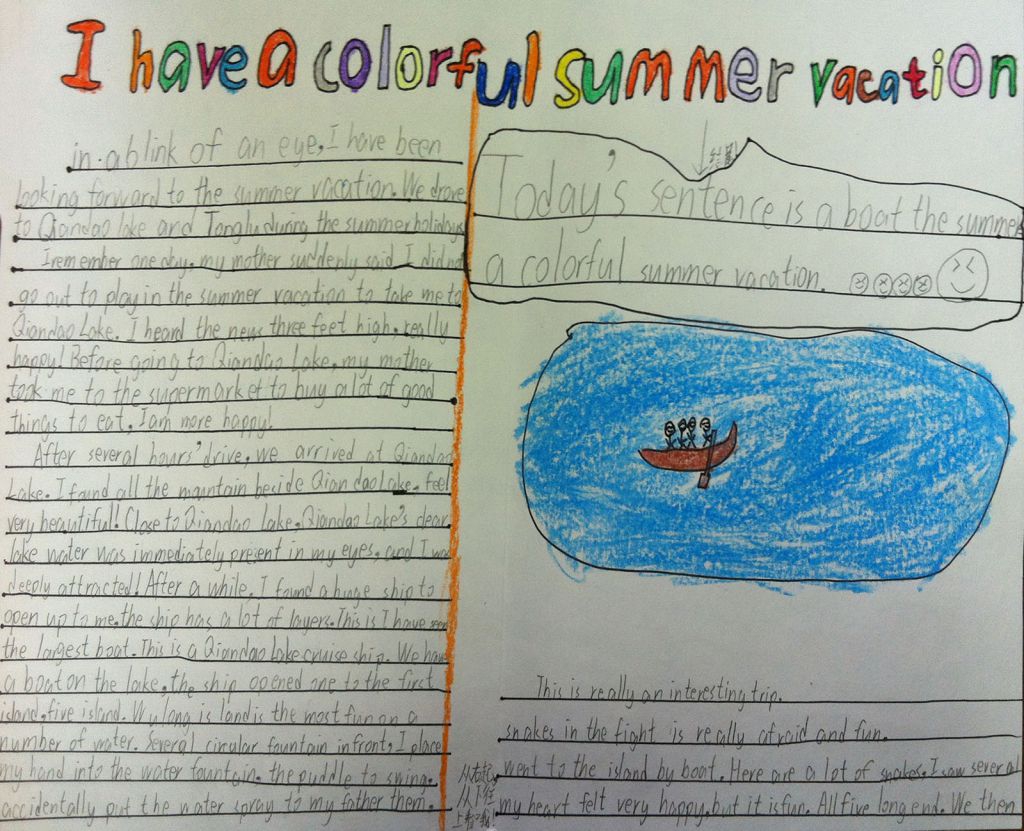 I have a colorful summer vacation
in a blink of an eye, I have been
looking forward to the summer vacation. We drove
to Qiandao lake and Tonglu during the summer holidays
I remember one day, my mother suddenly said I did not
go out to play in the summer vacation to take me to
Qiandao Lake. I heard the news three feet high, really
happy! Before going to Qiandao Lake, my mother
took me to the supermarket to buy a lot of good
things to eat, I am more happy!
After several hours' drive, we arrived at Qiandao
Lake. I found all the mountain beside Qiandao Lake. feel
very beautiful! Close to Qiandao Lake, Qiandao Lake's clear
lake water was immediately present in my eyes, and I was
deeply attracted! After a while, I found a huge ship to
open up to me. the ship has a lot of layers. This is I have seen
the largest boat. This is a Qiandao Lake cruise ship. We have
a boat on the lake, the ship opened one to the first
island, five island. Wulong island is the most fun on a
number of water. Several circular fountain in front, I place
my hand into the water fountain. the puddle to swing.
accidentally put the water spray to my father them.
Today's sentence is a boat the summer
a colorful summer vacation.
This is really an interesting trip.
snakes in the fight is really afraid and fun.
went to the island by boat. Here are a lot of snakes. I saw several
my heart felt very happy, but it is fun. All five long end. We then
从右起
从下往
上看